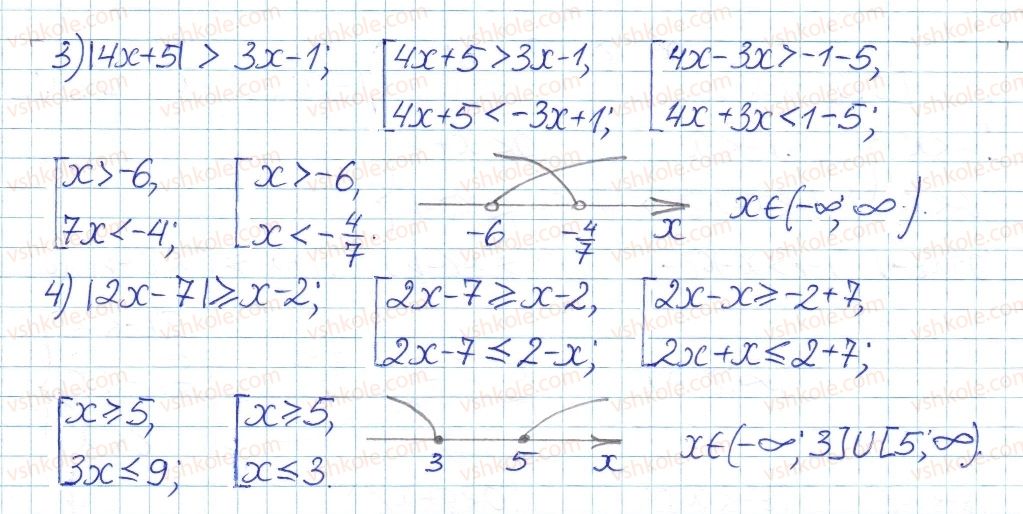 3) |4x+5| > 3x-1; [4x+5 > 3x-1, [4x-3x > -1-5,
4x+5 < -3x+1; 4x+3x < 1-5;
[x > -6, [x > -6,
7x < -4; x < -4/7. -6 -4/7 x x∈(-∞; ∞).
4) |2x-7| ≥ x-2; [2x-7 ≥ x-2, [2x-x ≥ -2+7,
2x-7 ≤ 2-x; 2x+x ≤ 2+7;
[x ≥ 5, [x ≥ 5,
3x ≤ 9; x ≤ 3. 3 5 x x∈(-∞; 3]∪[5; ∞).
vshkole.com